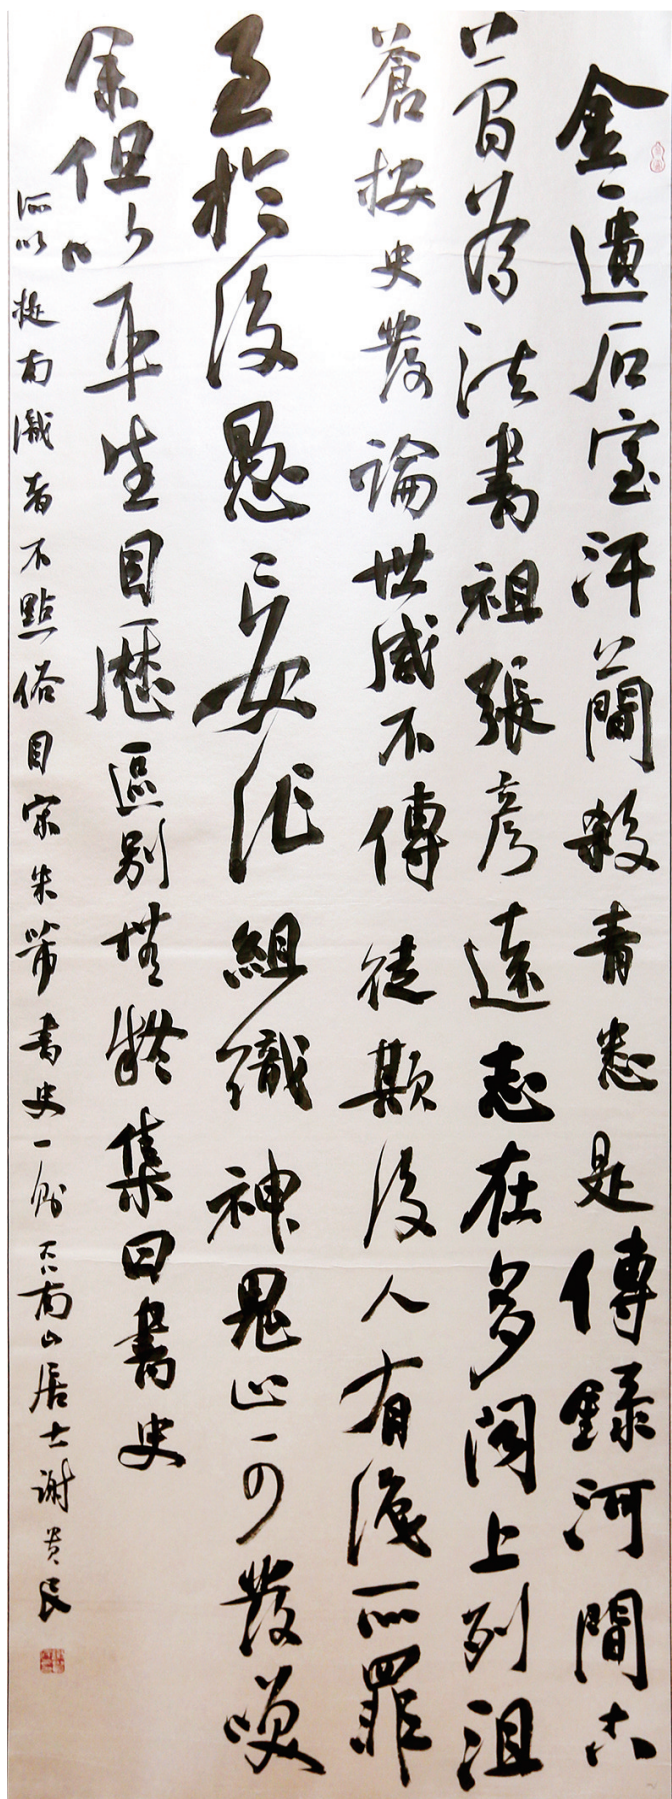 金遺石室汗簡殺青悉是傳錄河間古
簡為法書祖張彥遠志在多閱上列沮
蒼按史發論世咸不傳徒欺後人有識所罪
至於後愚妄作組織神鬼止可發笑
余但以平生目歷區別無疑集曰書史
所以提南識者不點俗目宋米芾書史一則南山居士謝貴民